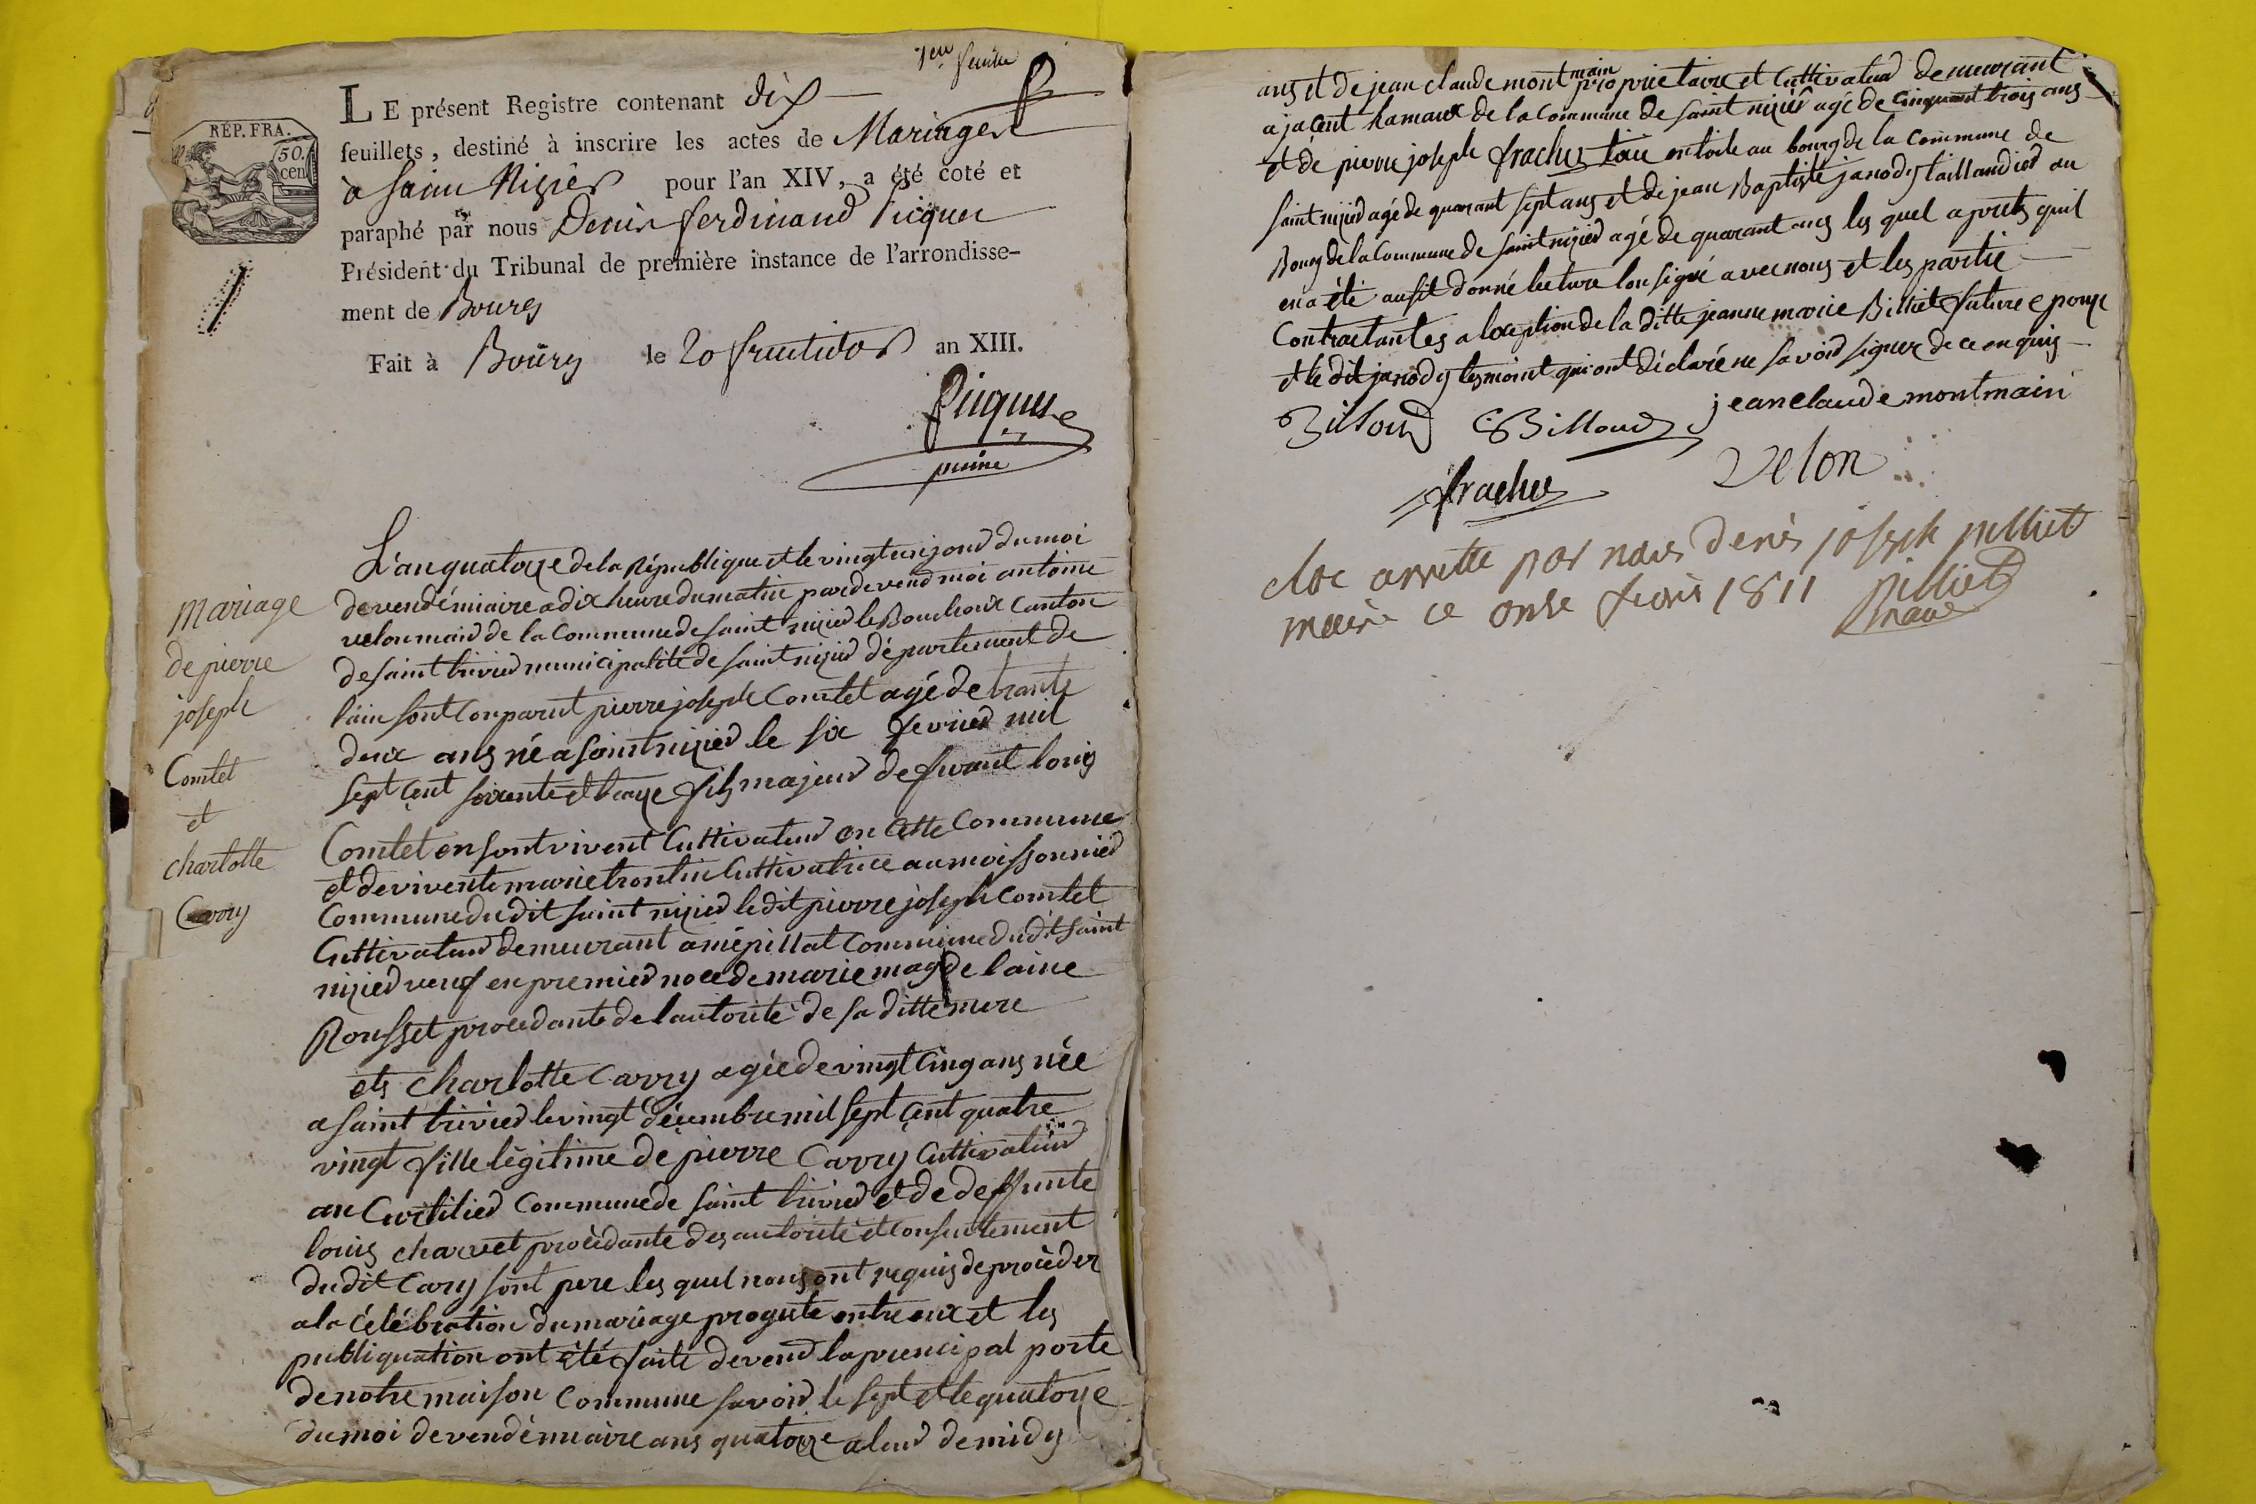 1ere feuille
REP. FRA.
50.
cen
LE présent Registre contenant dix
feuillets, destiné à inscrire les actes de Mariages
à Saint Nizier pour l'an XIV, a été coté et
paraphé par nous Denis Ferdinand Picquet
Président du Tribunal de première instance de l'arrondisse-
ment de Bourg
Fait à Bourg le 20 fructidor an XIII.
Picquet
L'an quatorze de la République et le vingt un jour du moi
de vendémiaire a dix heure du matin pardevend moi antoine
velon maire de la Commune de saint nizier le Bouchoux Canton
de saint trivier municipalité de saint nizier département de
l'ain sont Conparut pierre joseph Comtet agé de trante
deux ans né a saint nizier le six fevrier mil
sept cent soixente et traize fils majeur de fuant louis
Comtet en sont vivent Cultivateur en Cette Commune
et de vivente marie trontin Cultivatrice au moissonnier
Commune du dit saint nizier le dit pierre joseph Comtet
Cultivateur demeurant a mépillat Commune du dit saint
nizier veuf en premier noce de marie magdelaine
Rousset procedante de l'autorité de sa ditte mere
et charlotte Carry agée de vingt Cinq ans née
a saint trivier le vingt décembre mil sept cent quatre
vingt fille légitime de pierre Carry Cultivateur
au Curtilier Commune de saint trivier et de deffunte
louis charvet procédante des autorité et Consentement
du dit Cary sont pere les quel nous ont requis de procéder
a la Célébration du mariage progeté entre eux et les
publiquation ont été faite devend la principal porte
de notre maison Commune savoir le sept et le quatorze
du moi de vendémiaire ans quatorze a leur de midy
mariage
de pierre
joseph
Comtet
et
charlotte
Carry
ans et de jean claude montmain proprietaire et Cultivateur demeurant
a jacent hamaux de la Commune de saint nizier agé de cinquant trois ans
et de pierre joseph frachet en toile au bourg de la Commune de
saint nizier agé de quarant sept ans et de jean Baptiste janody taillandier au
Bourg de la Commune de saint nizier agé de quarant ans les quel aprets quil
en a été ausit donné lecture lon signé avec nous et les partie
Contractantes a loxeption de la ditte jeanne marie Billiet future epouze
et le dit janody tesmoint qui ont déclaré ne savoir signer de ce enquis
Billoud CBilloud jean claude montmain
frachet velon
cloc arretté par nous denis joseph pilliet
maire ce onse fevrié 1811 pilliet
maire